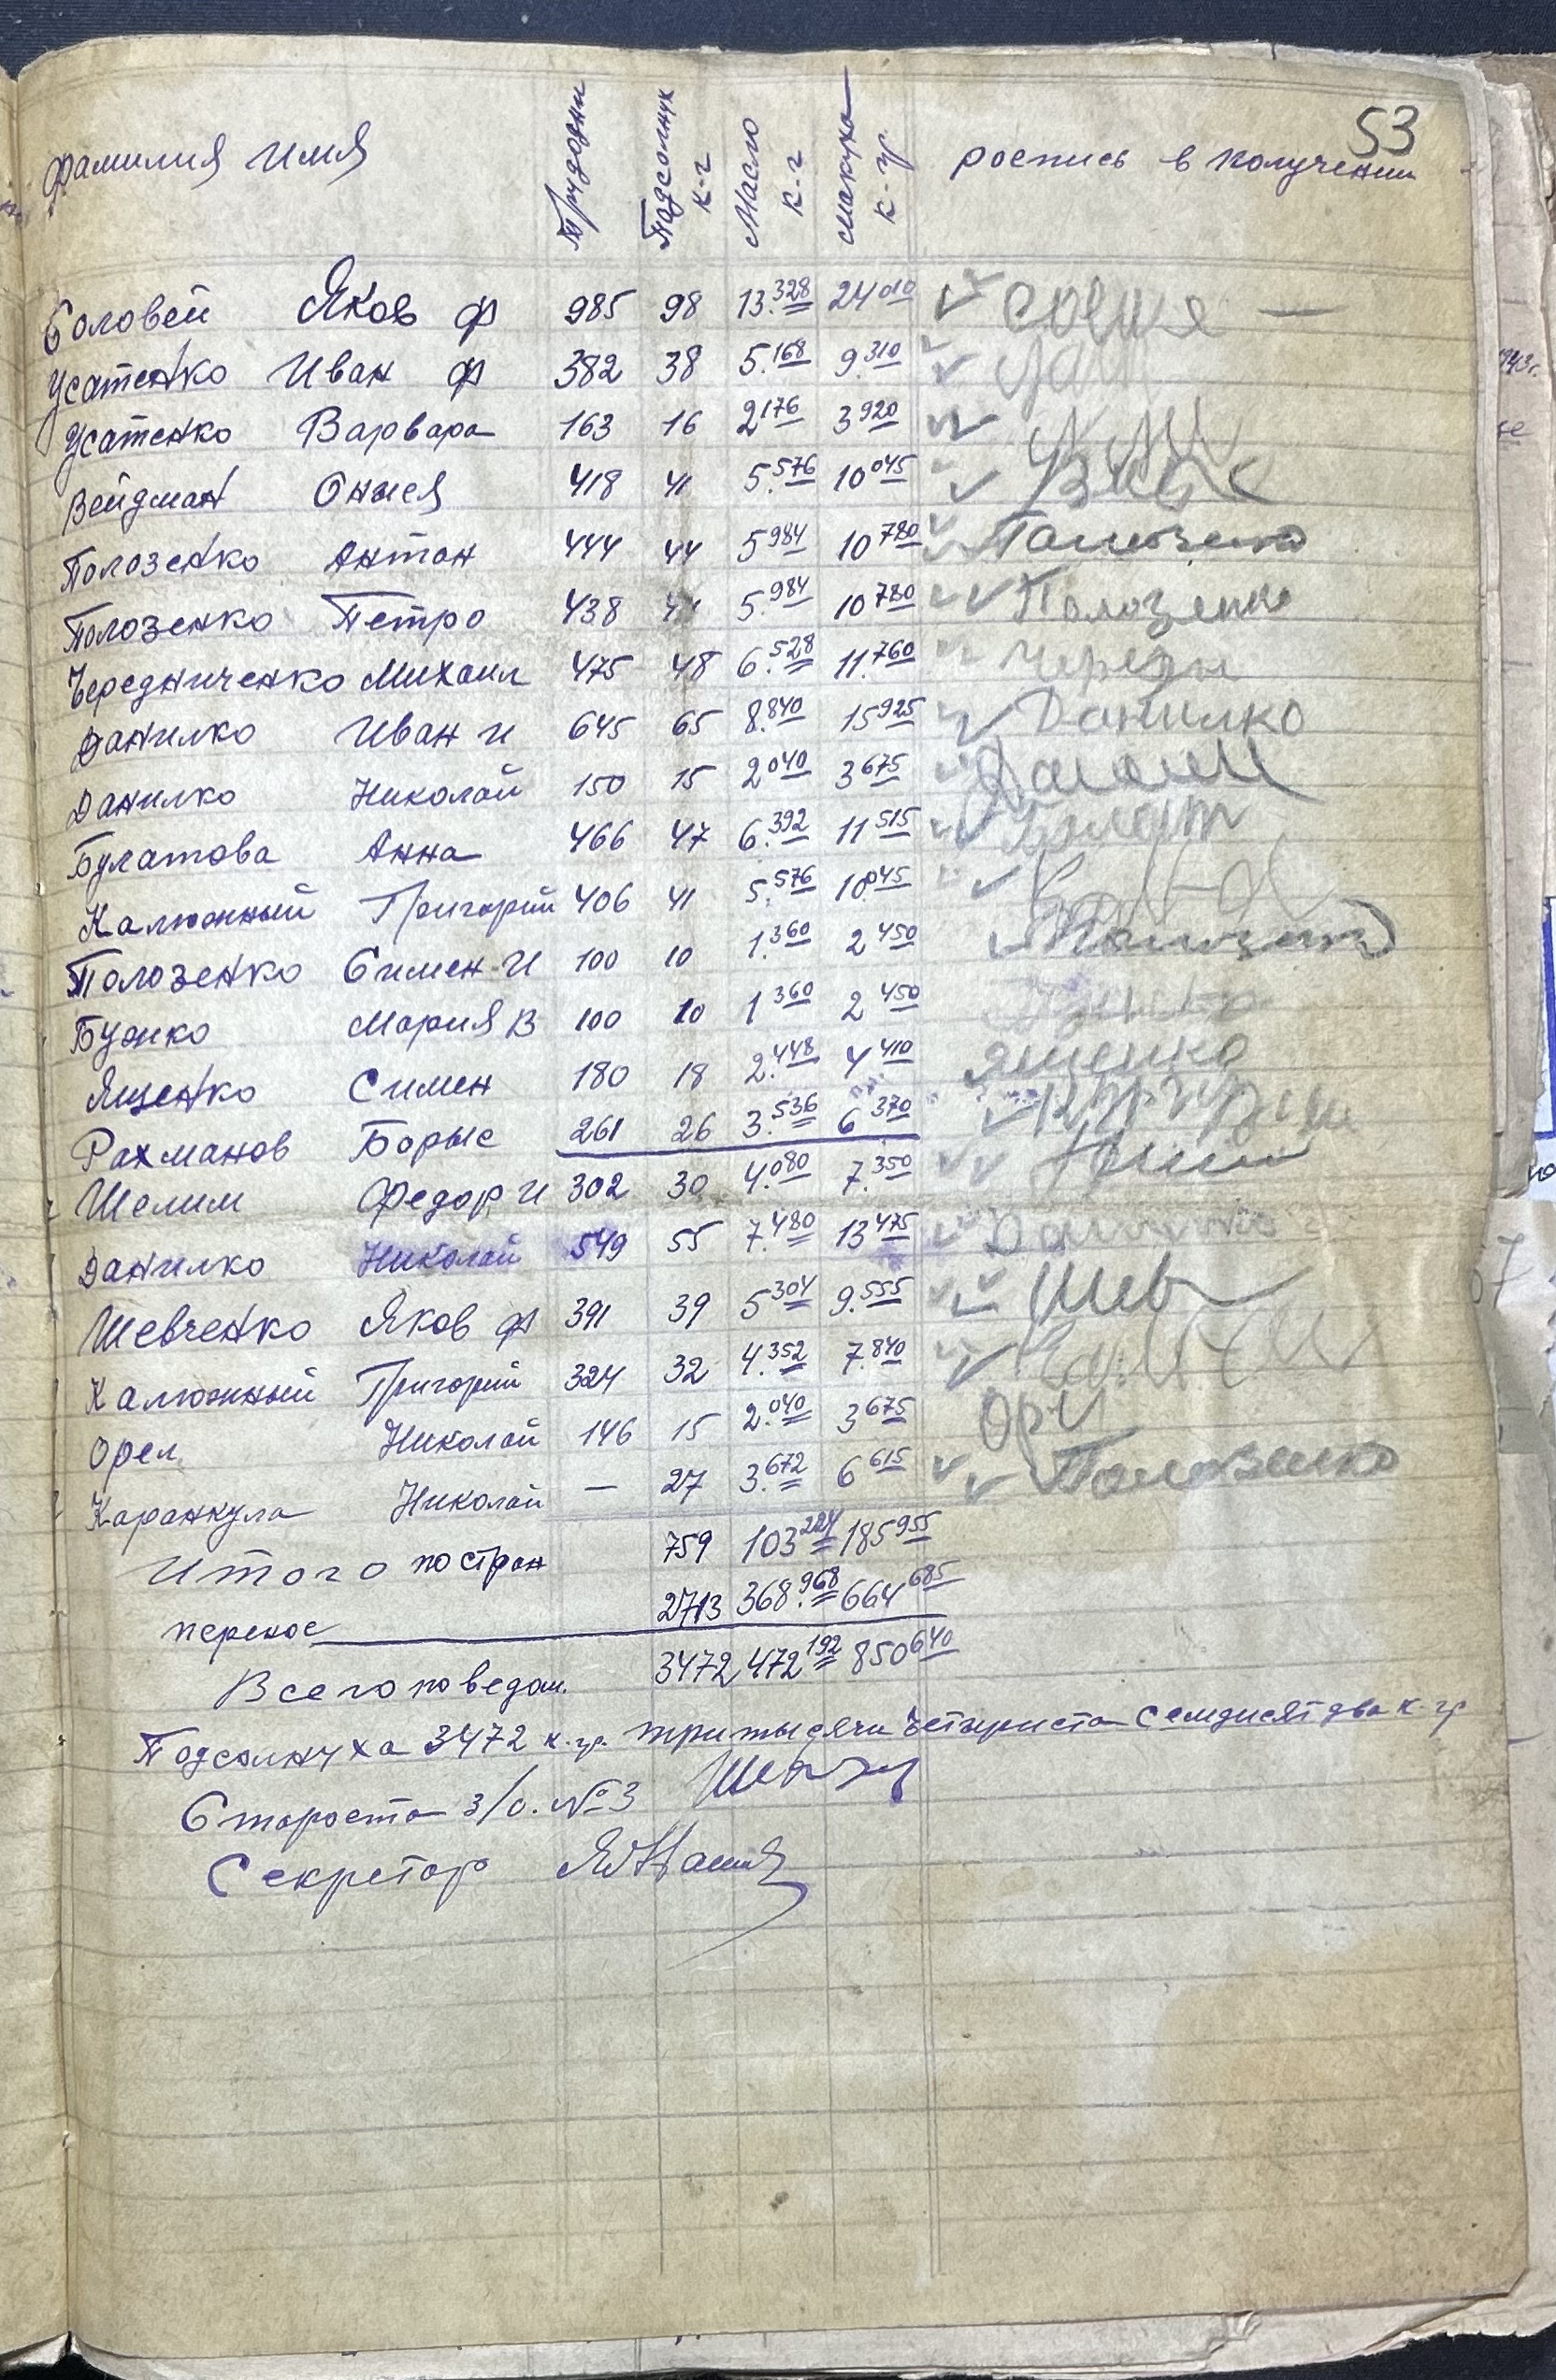 53
Фамилия Имя Трудодни Подсолнух к-г Масло к-г Макуха к-гр роспись в получении
Соловей Яков Ф 985 98 13.328 24 010
Усатенко Иван Ф 382 38 5.168 9.310
Усатенко Варвара 163 16 2 176 3 920
Вейдман 418 41 5.576 10 045
Полозенко Антон 444 44 5 984 10 780
Полозенко Петро 438 44 5.984 10 780 Полозенко
Чередниченко Михаил 475 48 6.528 11.760 Чередн
Данилко Иван И 645 65 8.840 15 925 Данилко
Данилко Николай 150 15 2 040 3 675
Булатова Анна 466 47 6.392 11 515
Калюжный Григорий 406 41 5.576 10.045
Полозенко Симен И 100 10 1.360 2 450
Бужко Мария В 100 10 1 360 2 450
Ященко Симен 180 18 2.448 4 410 Ященко
Рахманов Борыс 261 26 3.536 6 370
Шелим Федор И 302 30 4.080 7.350
Данилко Николай 549 55 7.480 13 475
Шевченко Яков Ф 391 39 5 304 9.555 Шев
Калюжный Григорий 324 32 4.352 7.840
Орел Николай 146 15 2.040 3 675
Каранкула Николай — 27 3.672 6 615 Полозенко
Итого по стран 759 103 224 185 955
перенос 2713 368.968 664 685
Всего по ведом. 3472 472 192 850 640
Подсолнуха 3472 к.гр. три тысячи Четыриста Семдисят два к-гр
Староста з/о. №3
Секретар